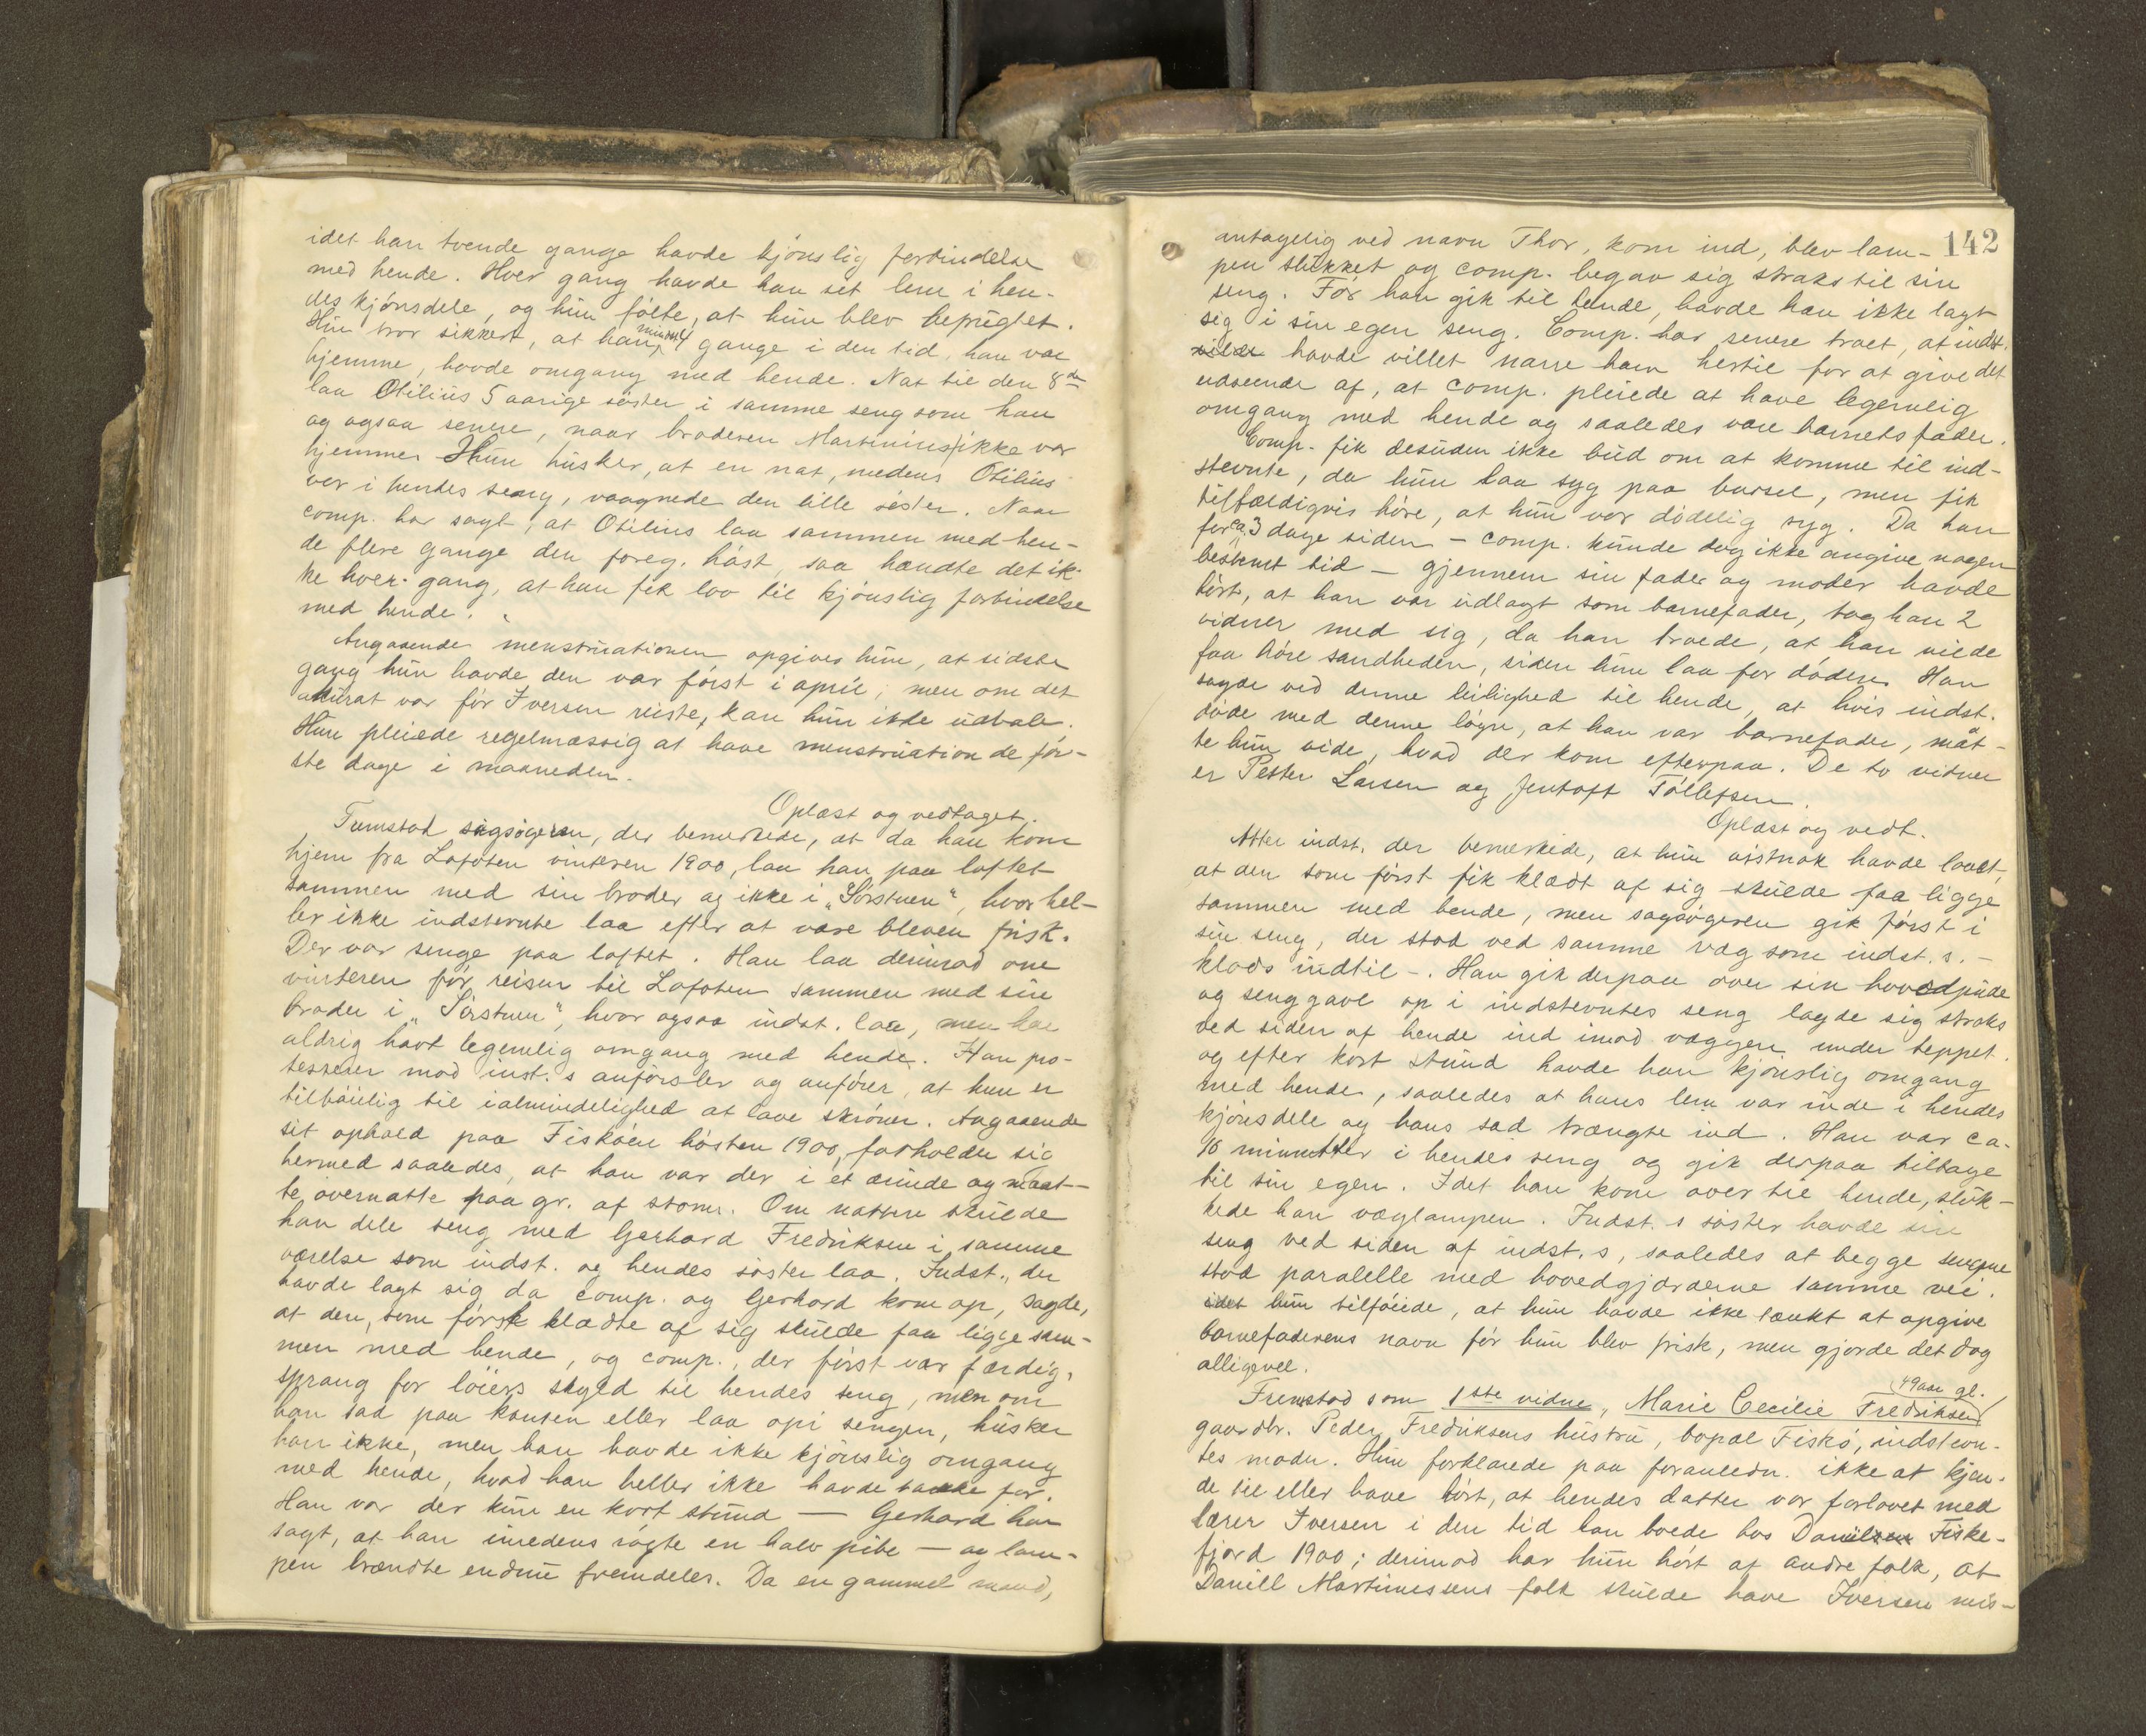 idet han tvende gange havde kjönslig forbindelse
med hende. Hver gang havde han set lem i hen-
des kjönsdele, og hun fölte, at hun blev befrugtet.
Hun tror sikkert, at han mindst 4 gange i den tid, han var
hjemme, havde omgang med hende. Nat til den 8de
laa Otilius 5 aarige söster i samme seng som han
og ogsaa senere, naar broderen Martinius ikke var
hjemme. Hun husker, at en nat, medens Otilius
var i hendes seng, vaagnede den lille söster. Naar
comp. har sagt, at Otilius laa sammen med hen-
de flere gange den foreg. höst, saa hændte det ik-
ke hver gang, at han fik lov til kjönslig forbindelse
med hende.
Angaaende menstruationen opgives hun, at sidste
gang hun havde den var först i april; men om det
akurat var för Iversen reiste, kan hun ikke udtale.
Hun pleiede regelmæssig at have menstruation de för-
ste dage i maaneden.
Oplæst og vedtaget.
Fremstod sagsögeren, der bemerkede, at da han kom
hjem fra Lofoten vinteren 1900, laa han paa loftet
sammen med sin broder og ikke i „Sörstuen“, hvor hel-
ler ikke indstevnte laa efter at være bleven frisk.
Der var senge paa loftet. Han laa derimod om
vinteren för reisen til Lofoten sammen med sin
broder i „Sörstuen“, hvor ogsaa indst. laa, men har
aldrig havt legemlig omgang med hende. Han pro-
testerer mod inst.s anförsler og anförer, at hun er
tilböielig til ialmindelighed at lave skröner. Angaaende
sit ophold paa Fisköen hösten 1900, forholder sig
hermed saaledes, at han var der i et ærinde og maat-
te overnatte paa gr. af storm. Om natten skulde
han dele seng med Gerhard Fredriksen i samme
værelse som indst. og hendes söster laa. Indst., der
havde lagt sig da comp. og Gerhard kom op, sagde,
at den, som först klædte af sig skulde faa ligge sam-
men med hende, og comp., der först var færdig,
sprang for löiers skyld til hendes seng, men om
han sad paa kanten eller laa opi sengen, husker
han ikke, men han havde ikke kjönslig omgang
med hende, hvad han heller ikke havde tanke for.
Han var der kun en kort stund — Gerhard har
sagt, at han imedens rögte en halv pibe — og lam-
pen brændte endnu fremdeles. Da en gammel mand,
142
antagelig ved navn Thor, kom ind, blev lam-
pen slukket og comp. begav sig straks til sin
seng. För han gik til hende, havde han ikke lagt
sig i sin egen seng. Comp. har senere troet, at indst.
havde villet narre ham hertil for at give det
udseende af, at comp. pleiede at have legemlig
omgang med hende og saaledes være barnets fader.
Comp. fik desuden ikke bud om at komme til ind-
stevnte, da hun laa syg paa barsel, men fik
tilfældigvis höre, at hun var dödelig syg. Da han
for ca. 3 dage siden — comp. kunde dog ikke angive nogen
bestemt tid — gjennem sin fader og moder havde
hört, at han var udlagt som barnefader, tog han 2
vidner med sig, da han troede, at han vilde
faa höre sandheden, siden hun laa for döden. Han
sagde ved denne leilighed til hende, at hvis indst.
döde med denne lögn, at han var barnefader, måt-
te hun vide, hvad der kom efterpaa. De to vidner
er Petter Larsen og Jentoft Tollefsen.
Oplæst og vedt.
Atter indst. der bemerkede, at hun vistnok havde lovet,
at den som först fik klædt af sig skulde faa ligge
sammen med hende, men sagsögeren gik först i
sin seng, der stod ved samme væg som indst.s. -
klods indtil -. Han gik derpaa over sin hovedpude
og senggavl op i indstevntes seng lagde sig straks
ved siden af hende ind imod væggen under teppet.
og efter kort stund havde han kjönslig omgang
med hende, saaledes at hans lem var inde i hendes
kjönsdele og hans sæd trængte ind. Han var ca.
10 minutter i hendes seng og gik derpaa tilbage
til sin egen. Idet han kom over til hende, sluk-
kede han væglampen. Indst.s söster havde sin
seng ved siden af indst.s, saaledes at begge sengene
stod paralelle med hovedgjærderne samme vei.
idet hun tilföiede, at hun havde ikke tænkt at opgive
barnefaderens navn för hun blev frisk, men gjorde det dog
alligevel.
Fremstod som 1ste vidne, Marie Cecilie Fredriksen 49 aar gl.
gaardbr. Peder Fredriksens hustru, bopæl Fiskö, indstevn-
tes moder. Hun forklarede paa foranledn. ikke at kjen-
de til eller have hört, at hendes datter var forlovet med
lærer Iversen i den tid han boede hos Danielsen Fiske-
fjord 1900; derimod har hun hört af andre folk, at
Daniel Martinussens folk skulde have Iversen mis-